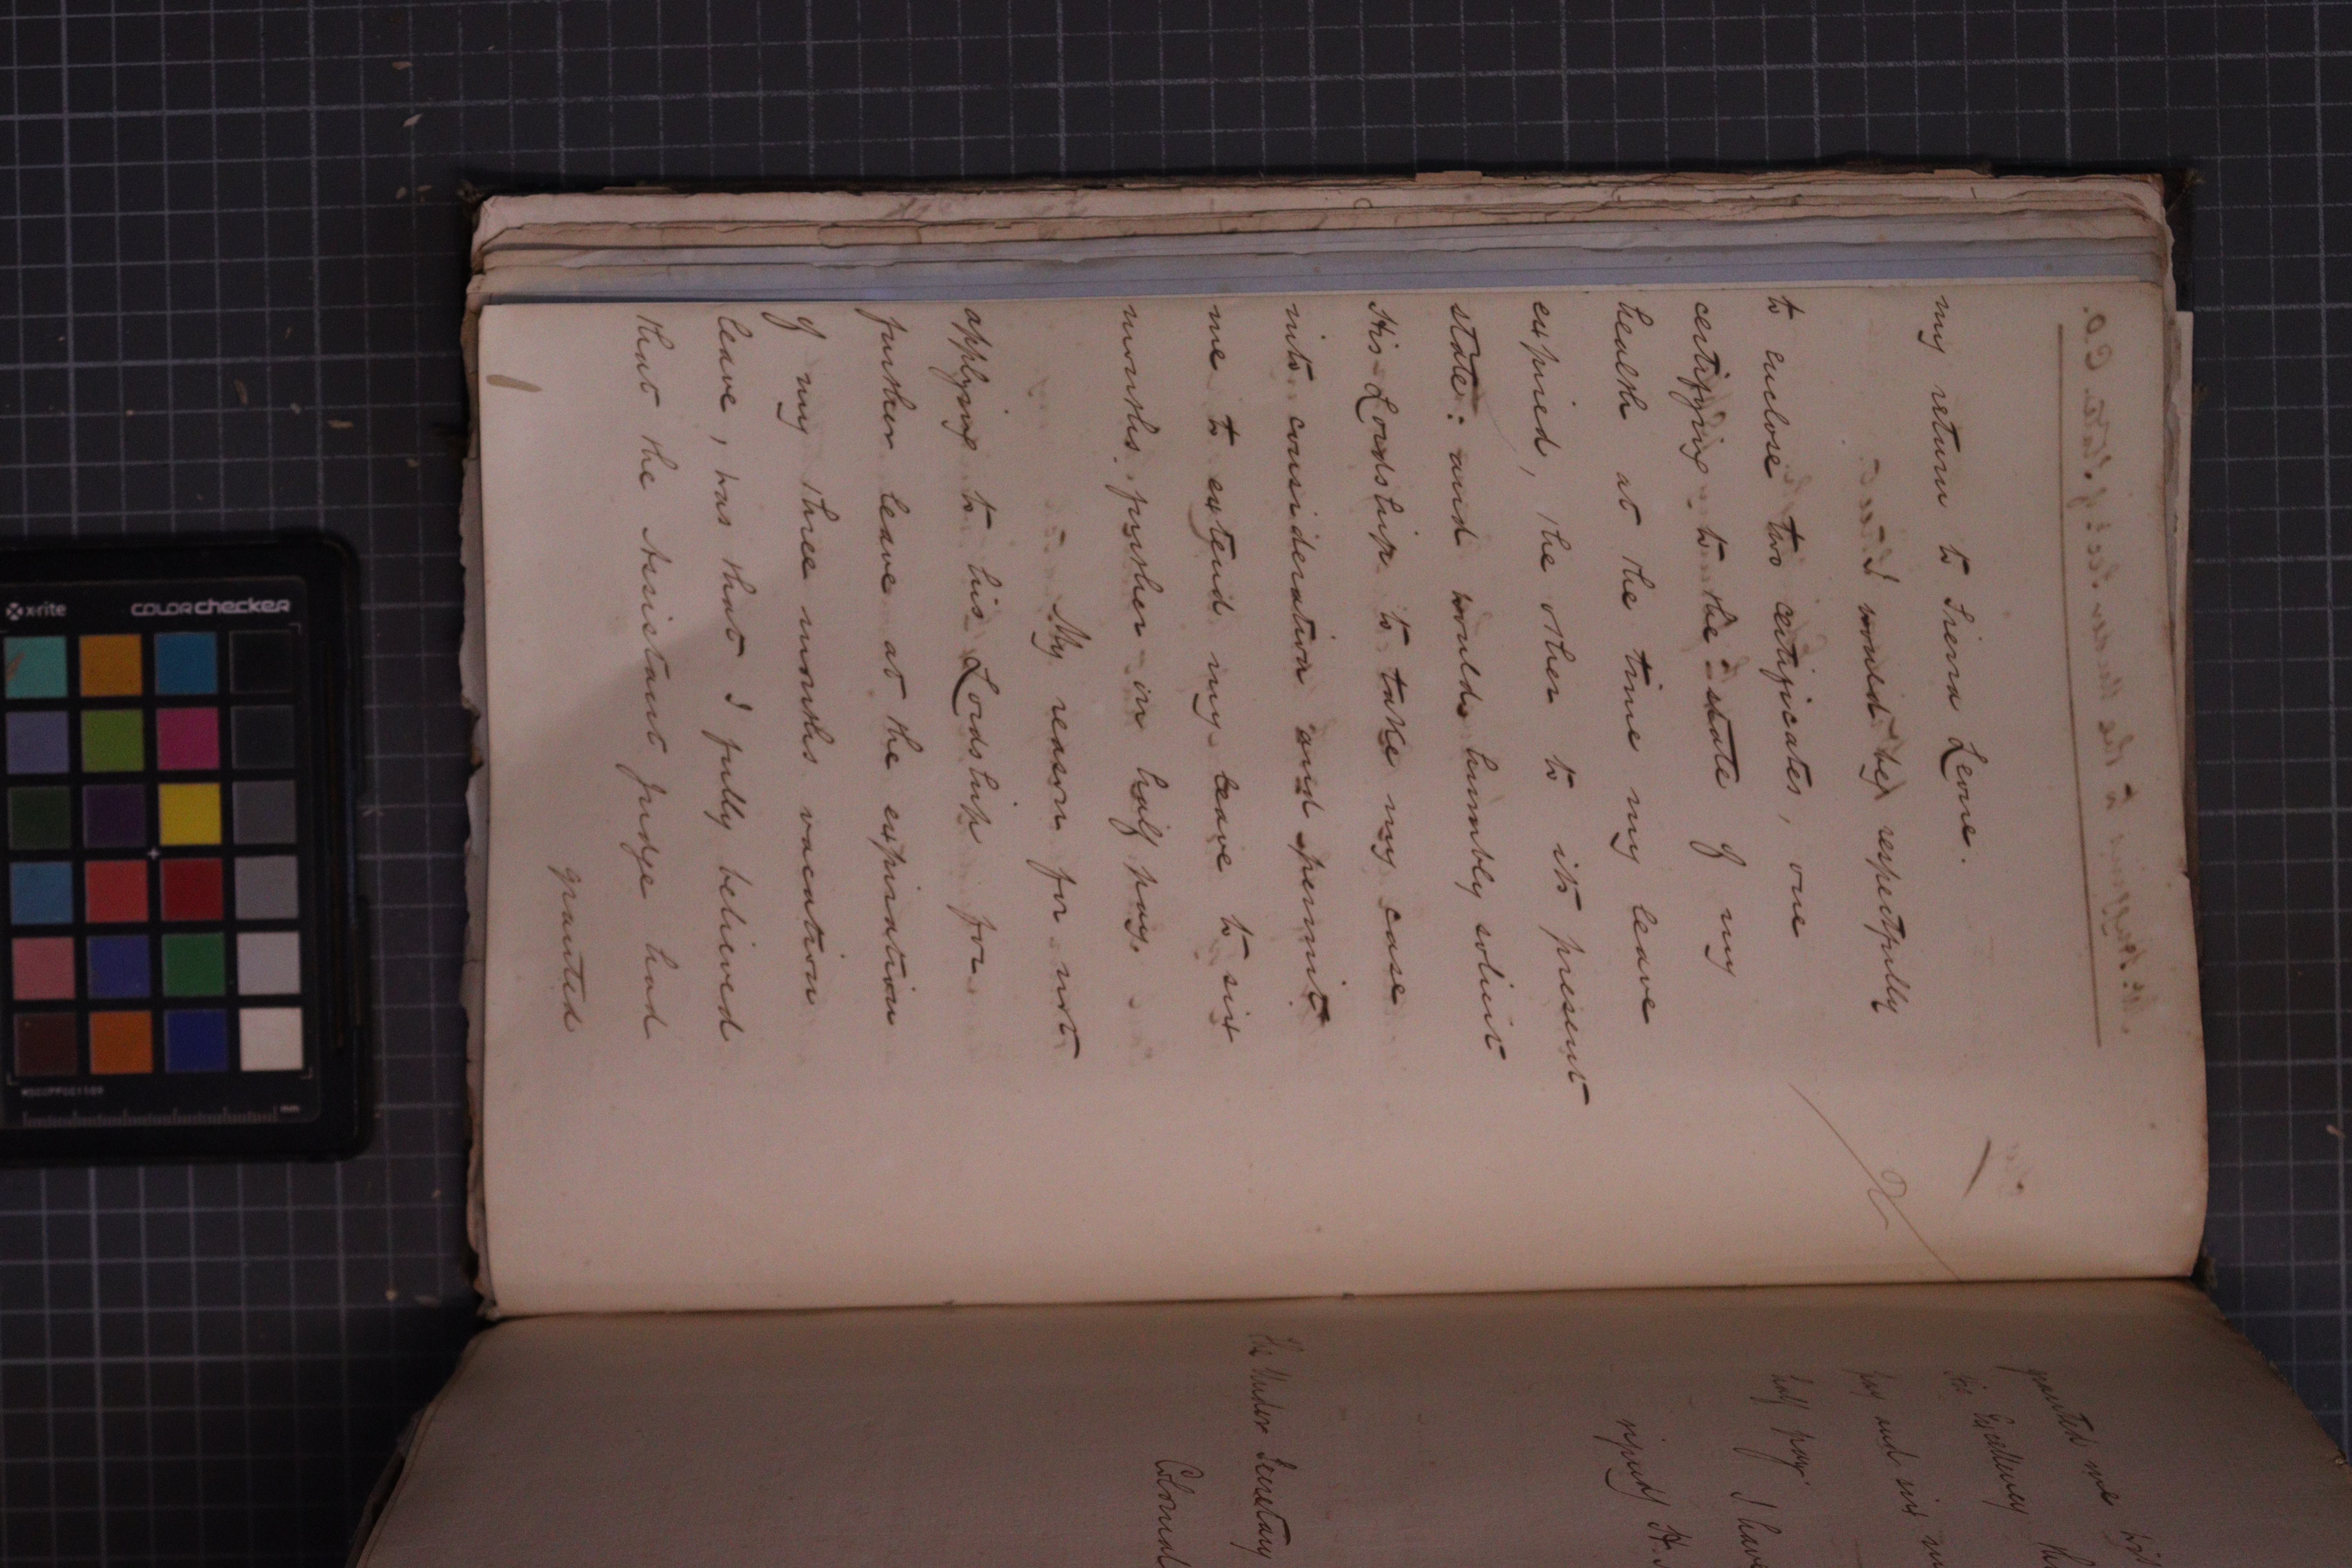 my return to Sierra Leone.
I would beg respectfully
to enclose two certificates, one
certifying to the state of my
health at the time my leave
expired, the other to its present
state: and would humbly solicit
His Lordship to take my case
into consideration and permit
me to extend my leave to six
months further on half pay.
My reason for not
applying to his Lordship for
further leave at the expiration
of my three months vacation
leave, was that I fully believed
that the Assistant Judge had
granted
granted me
his Excellency
pay and six
half pay. I have
The Under Secretary
Colonial
x-rite
colorchecker
mm